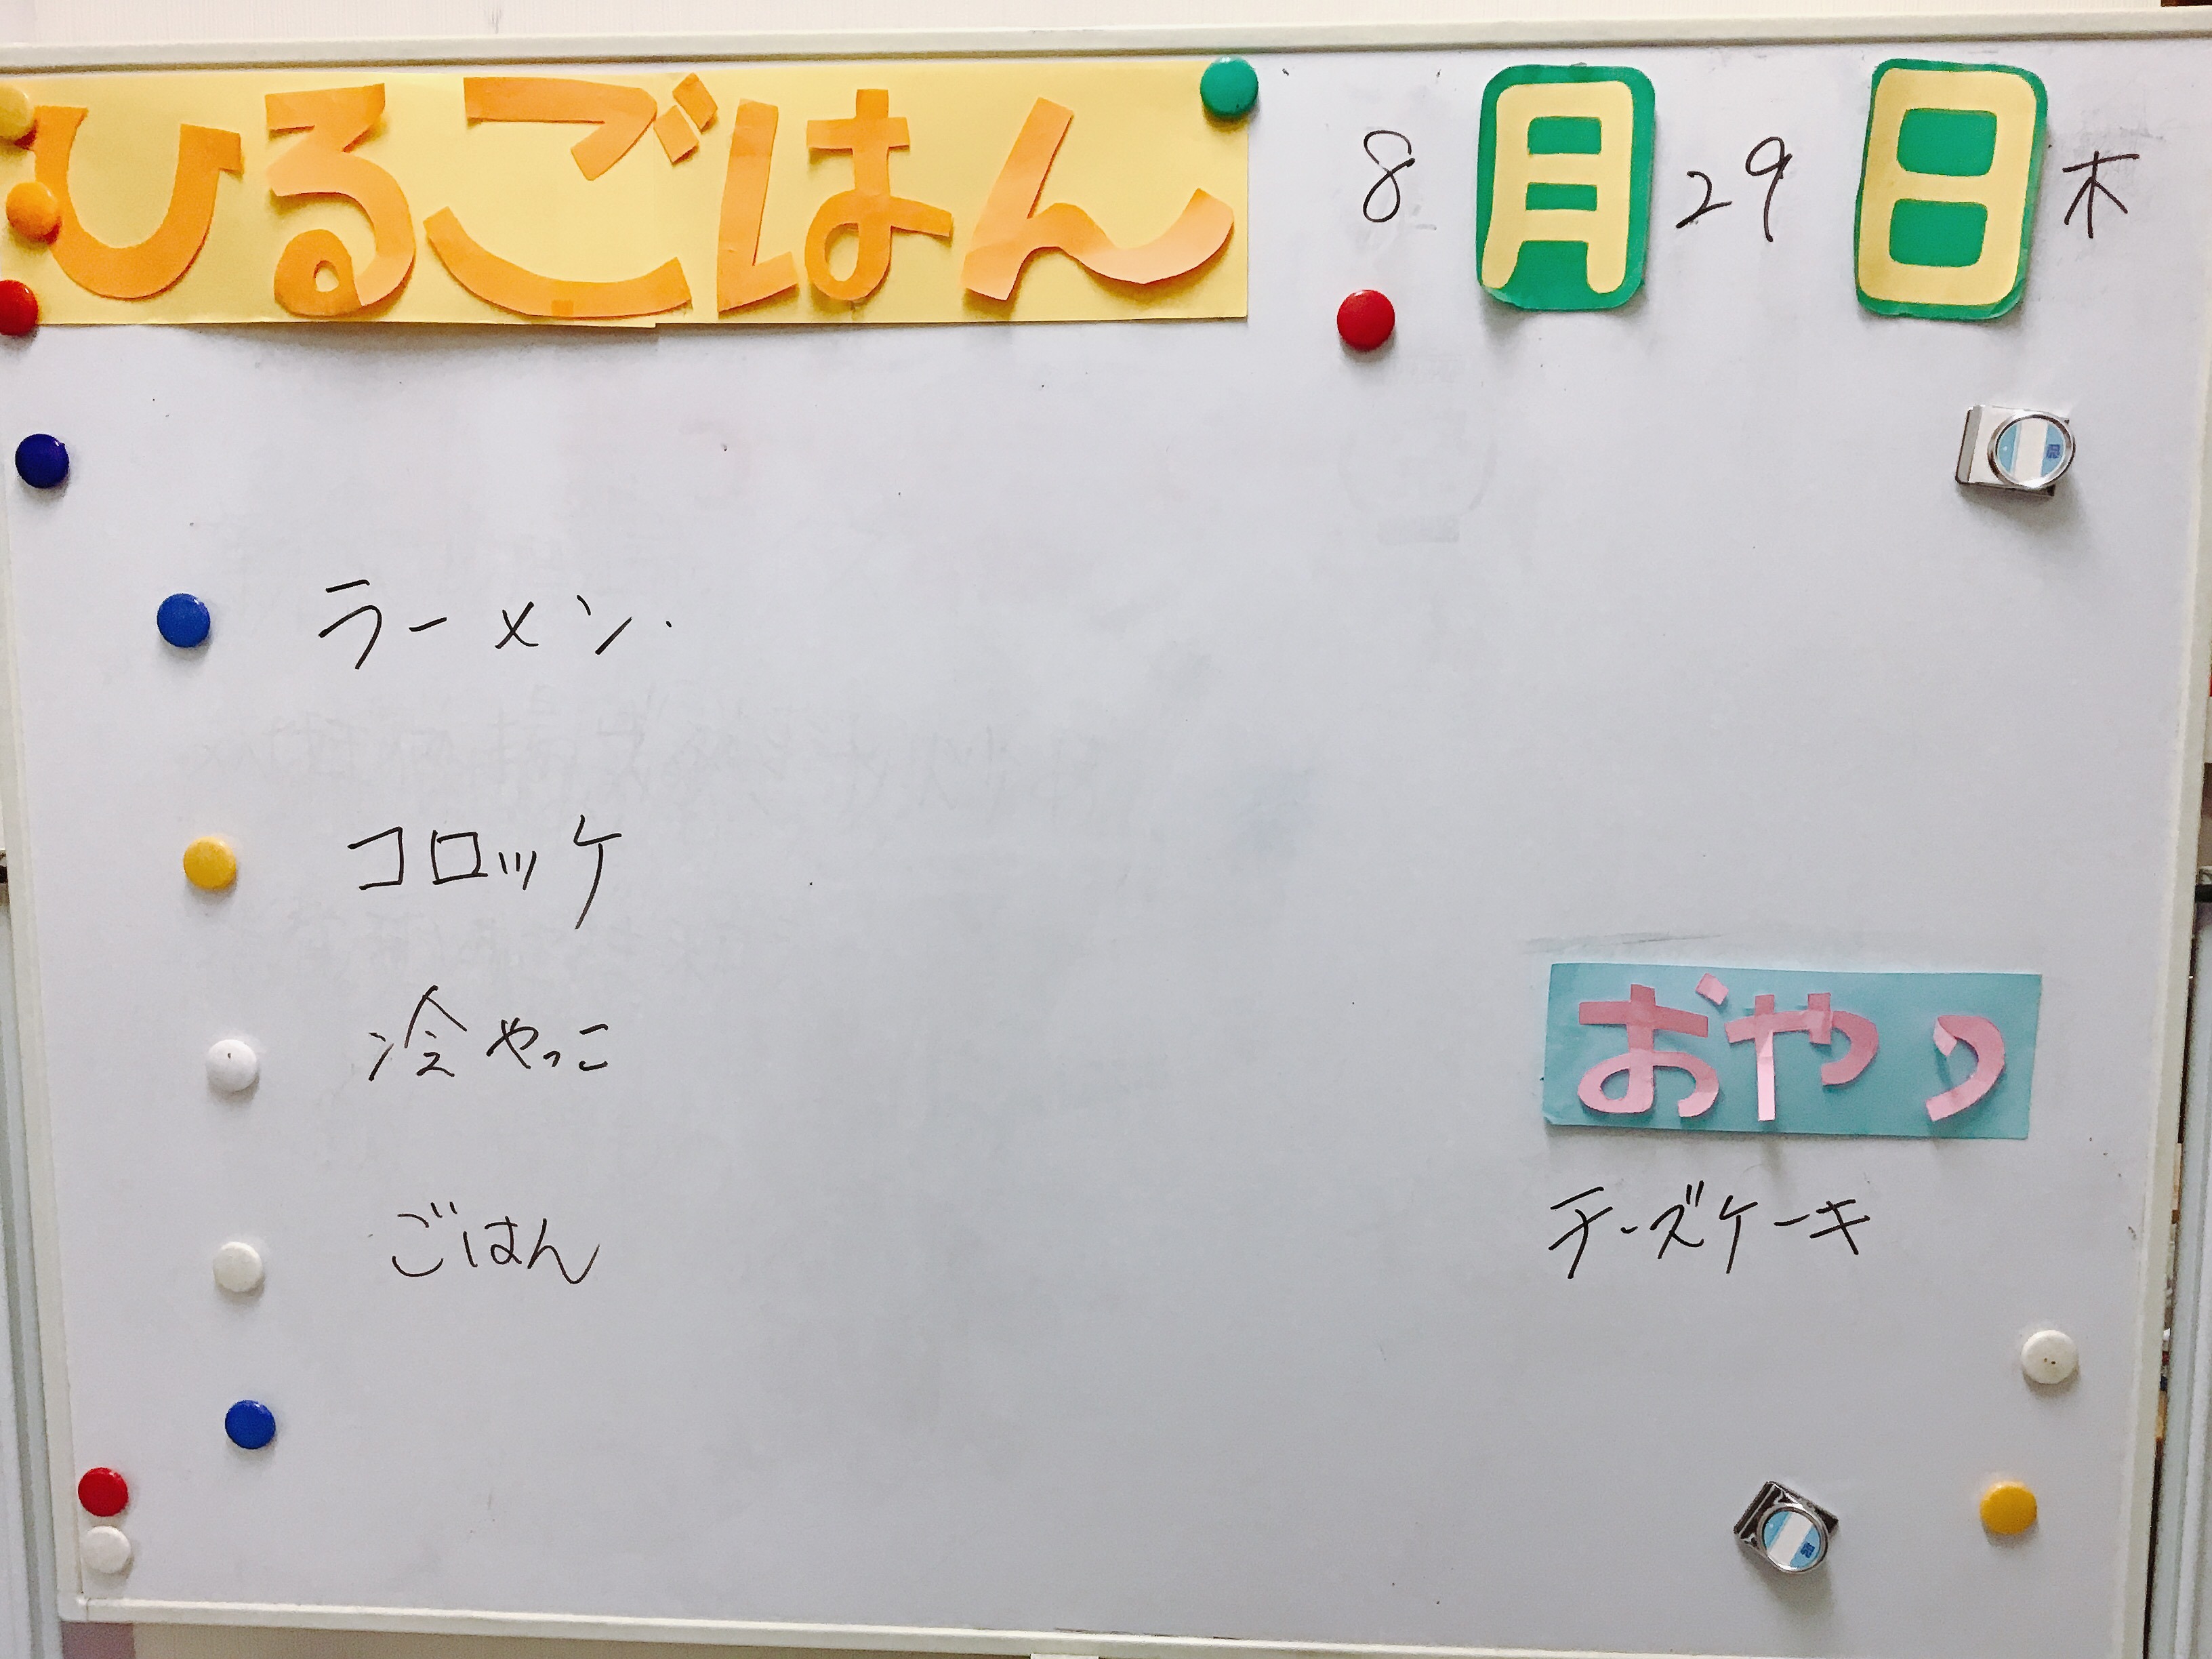 ひるごはん
8月29日 木
ラーメン
コロッケ
冷やっこ
ごはん
おやつ
チーズケーキ